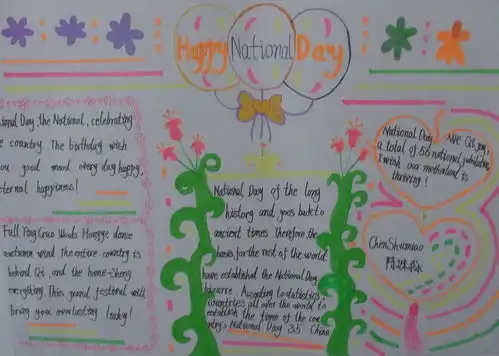 Happy National Day
ional Day, the National, celebrating
e country. The birthday wish
ou good mood every day happy,
ternal happiness!
Full Ying Guo Winds Hongye dance
autumn wind. The entire country is
behind Qi, and the home-Sheng
everything. This grand festival will
bring you everlasting lucky!
National Day of the long
history and goes back to
ancient times. Therefore the
basis, for the rest of the world
have established the National Day
bizarre. According to statistics,
countries all over the world to
establish the time of the cou
ntry's National Day 35. China
National Day We Qi joy,
a total of 56 national jubilation
I wish our motherland is
thriving!
Chen Shumiao